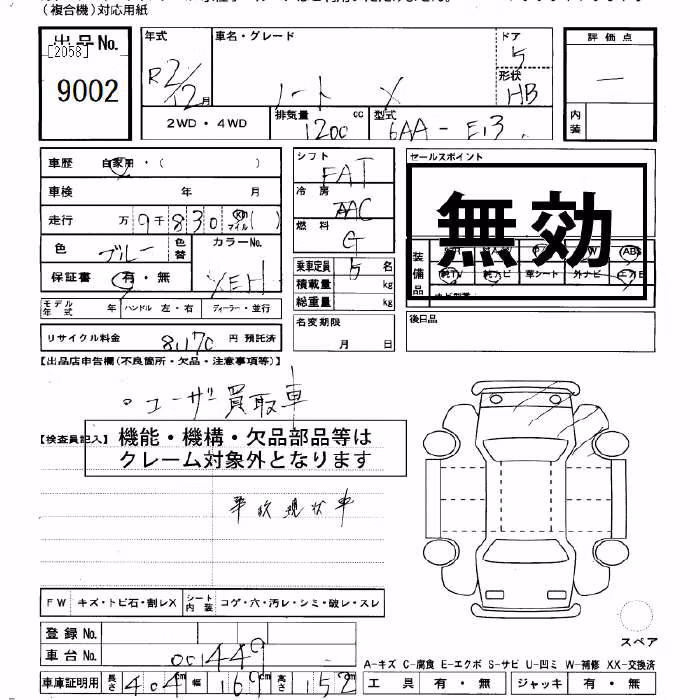 (複合機)対応用紙
出品No.
[2058]
9002
年式
R2/12月
車名・グレード
ノート X
ドア
5
形状
HB
評価点
—
内装
2WD・4WD
排気量 1200 cc
型式 6AA-E13
車歴 自家用・( )
車検 年 月
走行 万9千830 km マイル ( )
色 ブルー 色替
カラーNo.
保証書 有・無
モデル年式 年 ハンドル 左・右 ディーラー・並行
リサイクル料金 8,170 円 預託済
シフト FAT
冷房 AAC
燃料 G
乗車定員 5 名
積載量 kg
総重量 kg
名変期限
月 日
セールスポイント
無効
装備品
ABS
純TV 純ナビ 革シート 外ナビ エアB
後日品
【出品店申告欄(不良箇所・欠品・注意事項等)】
・ユーザー買取車
【検査員記入】
機能・機構・欠品部品等は
クレーム対象外となります
事故現状車
FW キズ・トビ石・割レX シート内装 コゲ・穴・汚レ・シミ・破レ・スレ
登録No.
車台No. 001449
車庫証明用 長さ 404cm 幅 169cm 高さ 152cm
スペア
A-キズ C-腐食 E-エクボ S-サビ U-凹ミ W-補修 XX-交換済
工具 有・無 ジャッキ 有・無